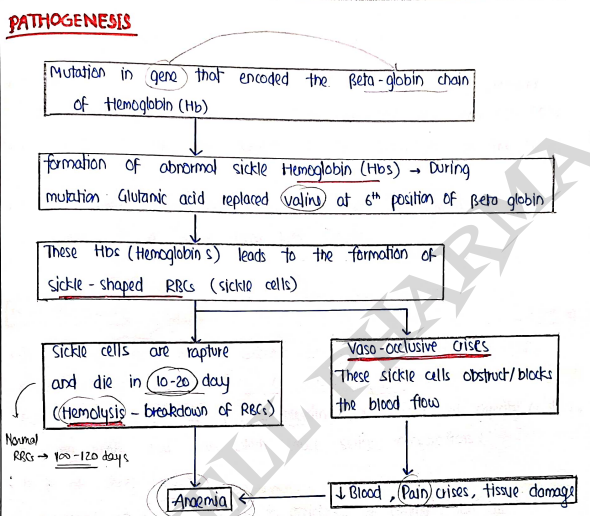 PATHOGENESIS
Mutation in gene that encoded the Beta-globin chain
of Hemoglobin (Hb)
formation of abnormal sickle Hemoglobin (Hbs) → During
mutation Glutanic acid replaced valine at 6th position of Beta globin
These Hbs (Hemoglobin s) leads to the formation of
sickle-shaped RBCs (sickle cells)
Sickle cells are rapture
and die in 10-20 day
(Hemolysis - breakdown of RBCs)
Normal
RBCs → 100-120 days
Vaso-occlusive crises
These sickle cells obstruct/blocks
the blood flow
↓ Blood, Pain crises, tissue damage
Anaemia
ELL PHARMA